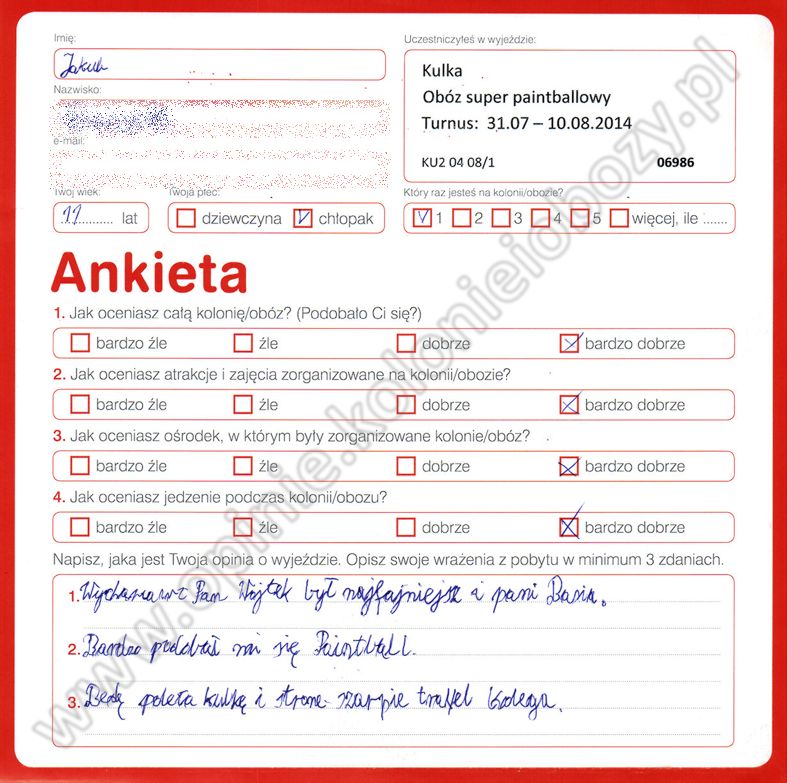 Imię:
Jakub
Uczestniczyłeś w wyjeździe:
Kulka
Obóz super paintballowy
Turnus: 31.07 – 10.08.2014
KU2 04 08/1 06986
Nazwisko:
e-mail:
Twój wiek:
11 lat
Twoja płeć:
dziewczyna chłopak
Który raz jesteś na kolonii/obozie?
1 2 3 4 5 więcej, ile .......
Ankieta
1. Jak oceniasz całą kolonię/obóz? (Podobało Ci się?)
bardzo źle źle dobrze bardzo dobrze
2. Jak oceniasz atrakcje i zajęcia zorganizowane na kolonii/obozie?
bardzo źle źle dobrze bardzo dobrze
3. Jak oceniasz ośrodek, w którym były zorganizowane kolonie/obóz?
bardzo źle źle dobrze bardzo dobrze
4. Jak oceniasz jedzenie podczas kolonii/obozu?
bardzo źle źle dobrze bardzo dobrze
Napisz, jaka jest Twoja opinia o wyjeździe. Opisz swoje wrażenia z pobytu w minimum 3 zdaniach.
1. Pan Wojtek był i pani Basia.
2. Bardzo mi się Paintball.
3. Będę kulkę i
www.opinie.kolonieiobozy.pl